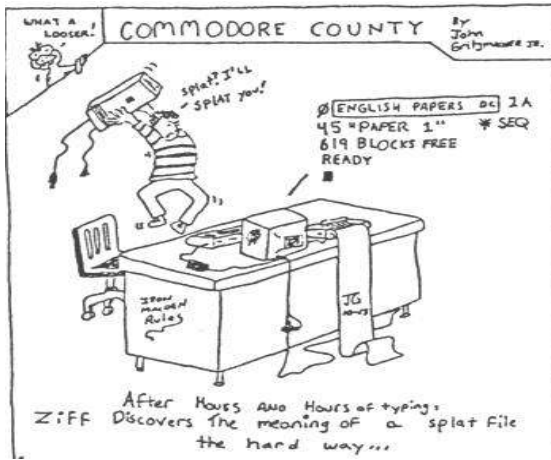 WHAT A
LOOSER!
COMMODORE COUNTY
By
John
JR.
splat? I'll
SPLAT YOU!
0 ENGLISH PAPERS DC 2A
45 "PAPER 1" * SEQ
619 BLOCKS FREE
READY
IRON
MAIDEN
Rules
JG
After Hours AND Hours of typing,
ZIFF Discovers The meaning of a splat File
the hard way...